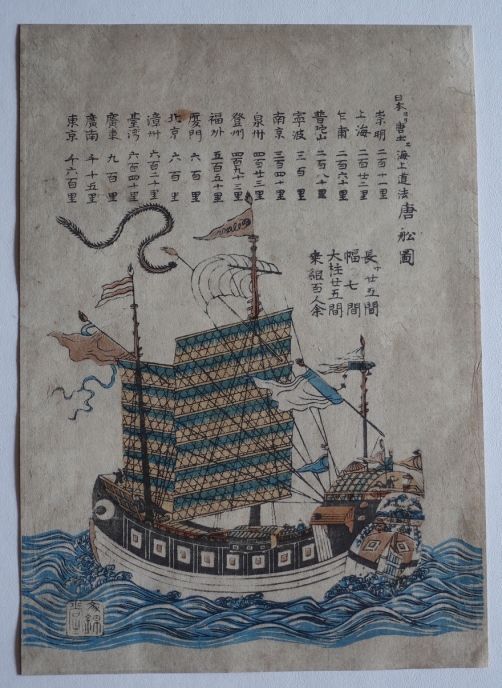 日本ヨリ唐土ニ海上道法
唐船圖
崇明 二百十一里
上海 二百廿二里
乍甫 二百六十里
普陀山 二百八十里
寧波 三百里
南京 三百四十里
泉州 四百廿三里
登州 四百九十三里
福州 五百五十里
厦門 六百里
北京 六百里
漳州 六百二十里
臺湾 六百四十里
廣東 九百里
廣南 千十五里
東京 千六百里
長サ廿五間
幅 七間
大柱廿五間
乗組百人余